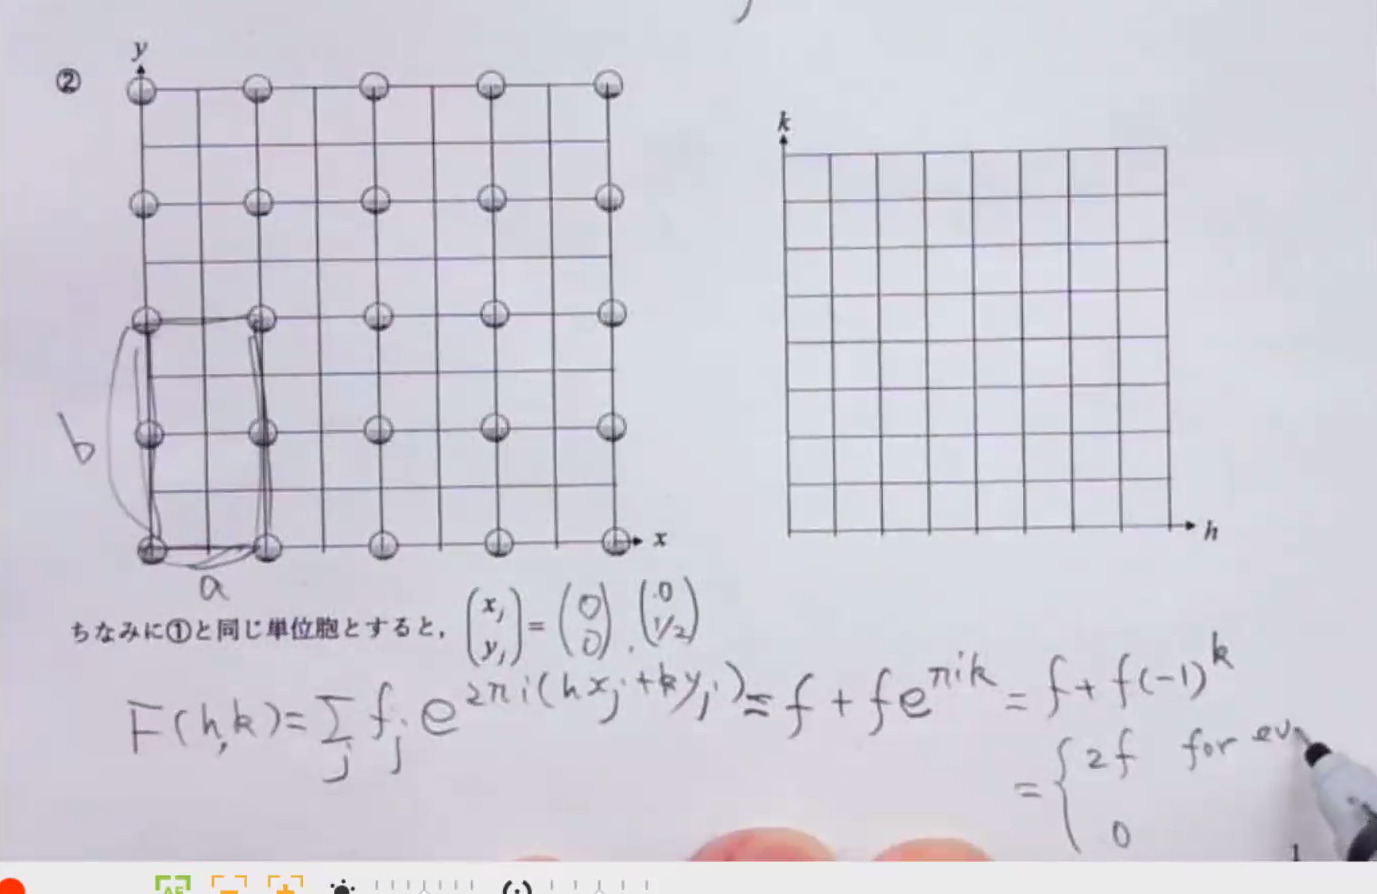 ②
y
x
k
h
b
a
ちなみに①と同じ単位胞とすると, (x_j y_j) = (0 0), (0 1/2)
F(h,k) = Σ_j f_j e^{2πi(hx_j+ky_j)} = f + f e^{πik} = f + f(-1)^k
= { 2f for ev
0
1
AF